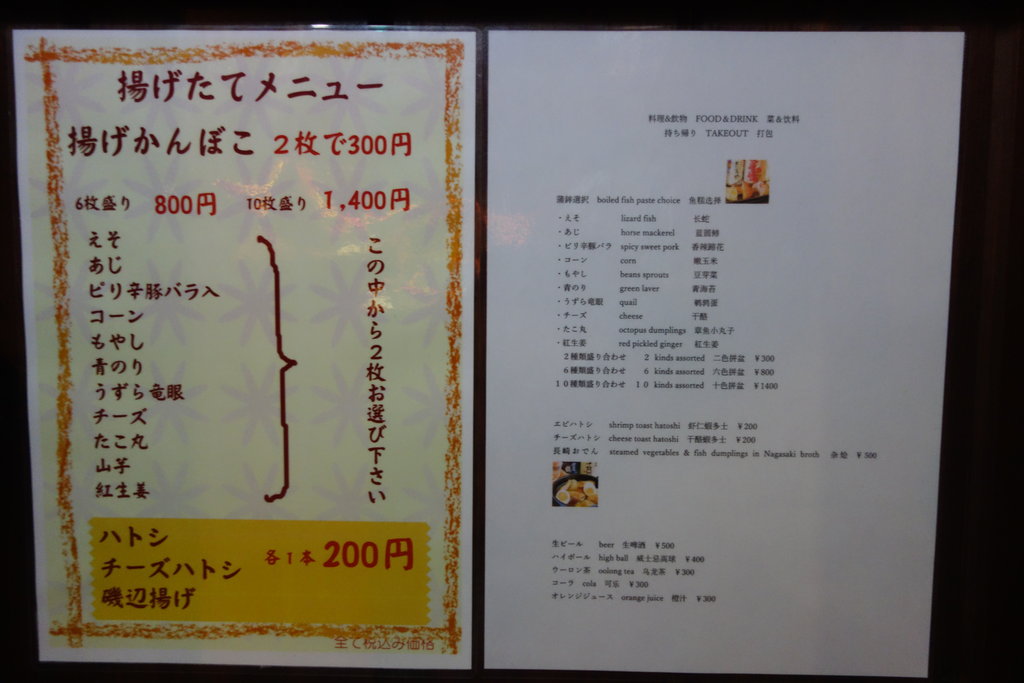 揚げたてメニュー
揚げかんぼこ 2枚で300円
6枚盛り 800円 10枚盛り 1,400円
えそ
あじ
ピリ辛豚バラ入
コーン
もやし
青のり
うずら竜眼
チーズ
たこ丸
山芋
紅生姜
この中から2枚お選び下さい
ハトシ
チーズハトシ
磯辺揚げ
各1本 200円
全て税込み価格
料理&飲物 FOOD&DRINK 菜&饮料
持ち帰り TAKEOUT 打包
蒲鉾選択 boiled fish paste choice 鱼糕选择
・えそ lizard fish 长蛇
・あじ horse mackerel 蓝圆鲹
・ピリ辛豚バラ spicy sweet pork 香辣蹄花
・コーン corn 嫩玉米
・もやし beans sprouts 豆芽菜
・青のり green laver 青海苔
・うずら竜眼 quail 鹌鹑蛋
・チーズ cheese 干酪
・たこ丸 octopus dumplings 章魚小丸子
・紅生姜 red pickled ginger 紅生姜
2種類盛り合わせ 2 kinds assorted 二色拼盆 ¥300
6種類盛り合わせ 6 kinds assorted 六色拼盆 ¥800
10種類盛り合わせ 10 kinds assorted 十色拼盆 ¥1400
エビハトシ shrimp toast hatoshi 虾仁蝦多士 ¥200
チーズハトシ cheese toast hatoshi 干酪蝦多士 ¥200
長崎おでん steamed vegetables & fish dumplings in Nagasaki broth 杂烩 ¥500
生ビール beer 生啤酒 ¥500
ハイボール high ball 威士忌高球 ¥400
ウーロン茶 oolong tea 乌龙茶 ¥300
コーラ cola 可乐 ¥300
オレンジジュース orange juice 橙汁 ¥300